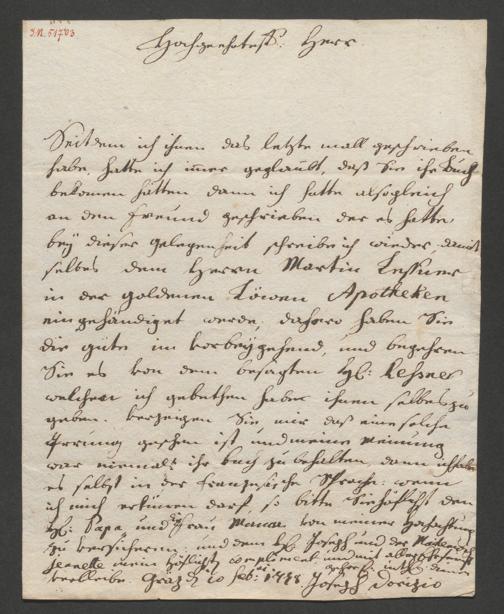 I.N. 51783
Hochgeehrtest: Herr
Seitdem ich ihnen das letzte mall geschrieben
habe, hatte ich immer geglaubt, daß Sie ihr Buch
bekomen hätten dann ich hatte alsogleich
an dem Freund geschrieben der es hatte
bey dieser gelegenheit schreibe ich wieder, damit
selbes dem Herrn Martin Leßner
in der goldenen Löwen Apotheken
eingehändiget werde, dahero haben Sie
die güte im vorbeygehend, und begehren
Sie es von dem besagten H: Leßner
welchen ich gebethen habe ihnen selbes zu
geben. verzeigen Sie mir daß eine solche
Irrung geschen ist, und meine meinung
war niemals ihr buch zu behalten, dann ich habe
es selbst in der französische Sprache: wenn
ich mich erkünen darf, so bitte Sie höflichst den
H: Papa und Frau Maman von meiner hochachtung
zu versicheren, und dem H: Joseph und der
Jeanette mein höflichstes compliment und mit aller
verbleibe. Graz d 10 feb: 1788 Joseph Dorizio